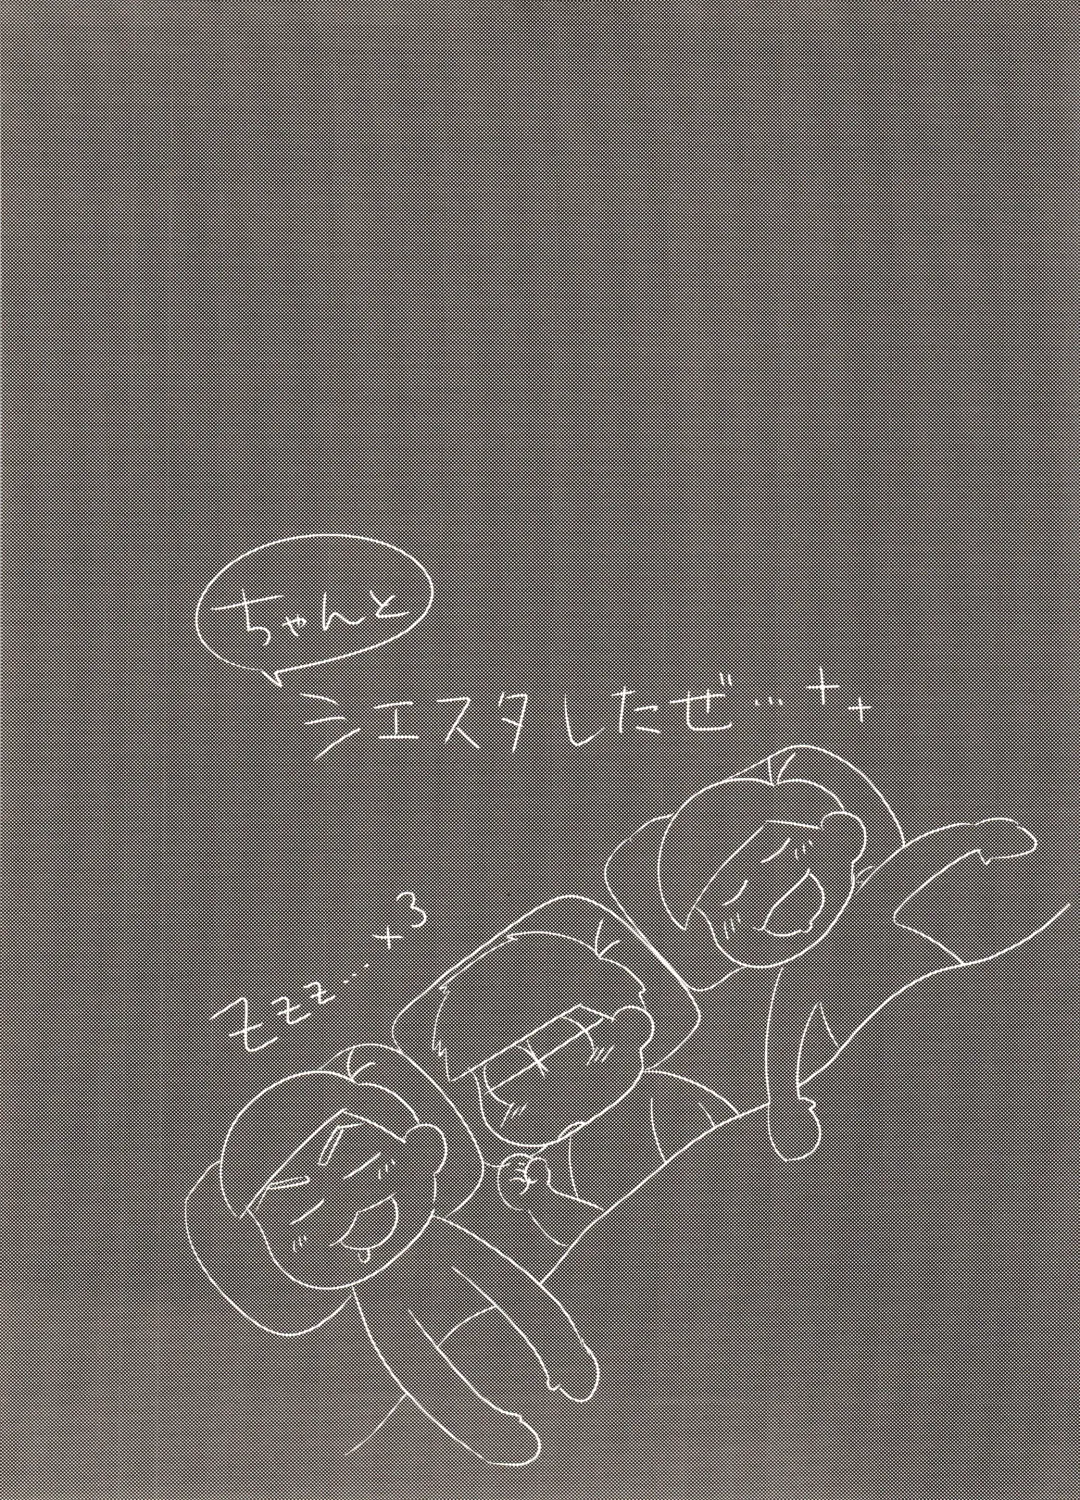 ちゃんと
シエスタしたぜ…++
zzz…+3